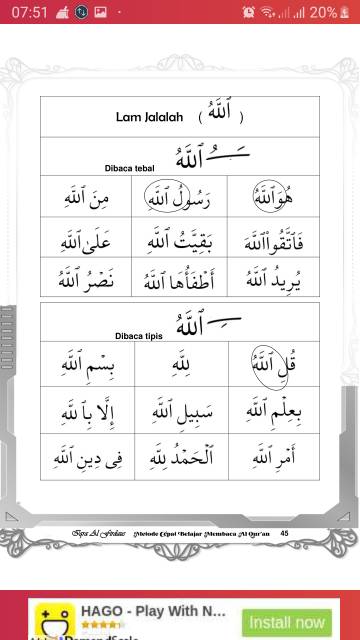 07:51
20%
Lam Jalalah ( اَللّٰهُ )
ـَـُـ اللّٰهُ
Dibaca tebal
هُوَ اللّٰهُ رَسُولُ اللّٰهِ مِنَ اللّٰهِ
فَاتَّقُوا اللّٰهَ بَقِيَّتُ اللّٰهِ عَلَى اللّٰهِ
يُرِيدُ اللّٰهُ أَطْفَأَهَا اللّٰهُ نَصْرُ اللّٰهِ
ـِـ اللّٰهُ
Dibaca tipis
قُلِ اللّٰهُ لِلّٰهِ بِسْمِ اللّٰهِ
بِعِلْمِ اللّٰهِ سَبِيلِ اللّٰهِ إِلَّا بِاللّٰهِ
أَمْرِ اللّٰهِ الْحَمْدُ لِلّٰهِ فِى دِينِ اللّٰهِ
Iqra Al Firdaus Metode Cepat Belajar Membaca Al Qur'an 45
HAGO - Play With N...
Install now